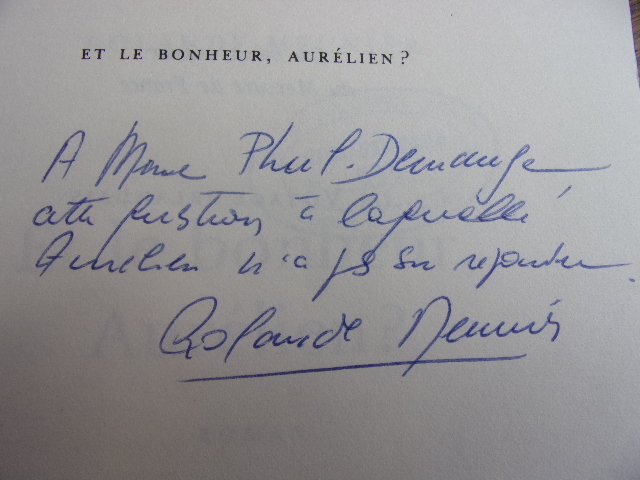 ET LE BONHEUR, AURÉLIEN ?
A Mme Phul-Demange,
cette question à laquelle
Aurélien n'a pas su répondre.
Rolande